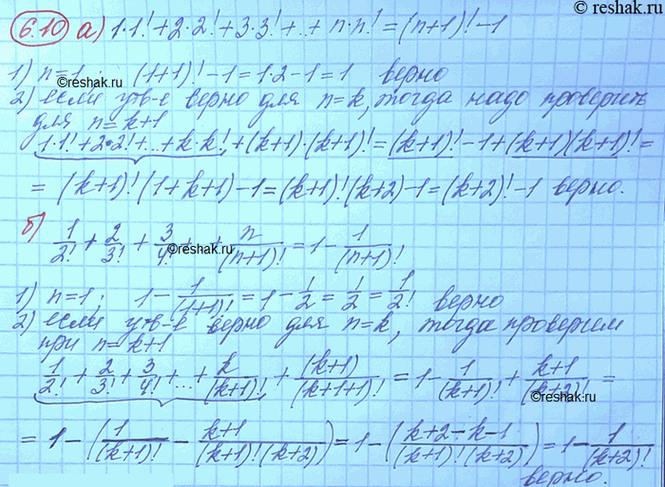 ©reshak.ru
6.10 а) 1·1! + 2·2! + 3·3! + .. + n·n! = (n+1)! - 1
1) n=1 ; (1+1)! - 1 = 1·2 - 1 = 1 верно
2) если утв-е верно для n=k, тогда надо проверить
для n=k+1
1·1! + 2·2! + .. + k·k! + (k+1)·(k+1)! = (k+1)! - 1 + (k+1)(k+1)! =
= (k+1)! (1+k+1) - 1 = (k+1)! (k+2) - 1 = (k+2)! - 1 верно.
б) 1/2! + 2/3! + 3/4! + .. + n/(n+1)! = 1 - 1/(n+1)!
©reshak.ru
1) n=1; 1 - 1/(1+1)! = 1 - 1/2 = 1/2 = 1/2! верно
2) если утв-е верно для n=k, тогда проверим
при n=k+1
1/2! + 2/3! + 3/4! + ... + k/(k+1)! + (k+1)/(k+1+1)! = 1 - 1/(k+1)! + (k+1)/(k+2)! =
©reshak.ru
= 1 - (1/(k+1)! - (k+1)/((k+1)! (k+2))) = 1 - ((k+2-k-1)/((k+1)! (k+2))) = 1 - 1/(k+2)!
верно.